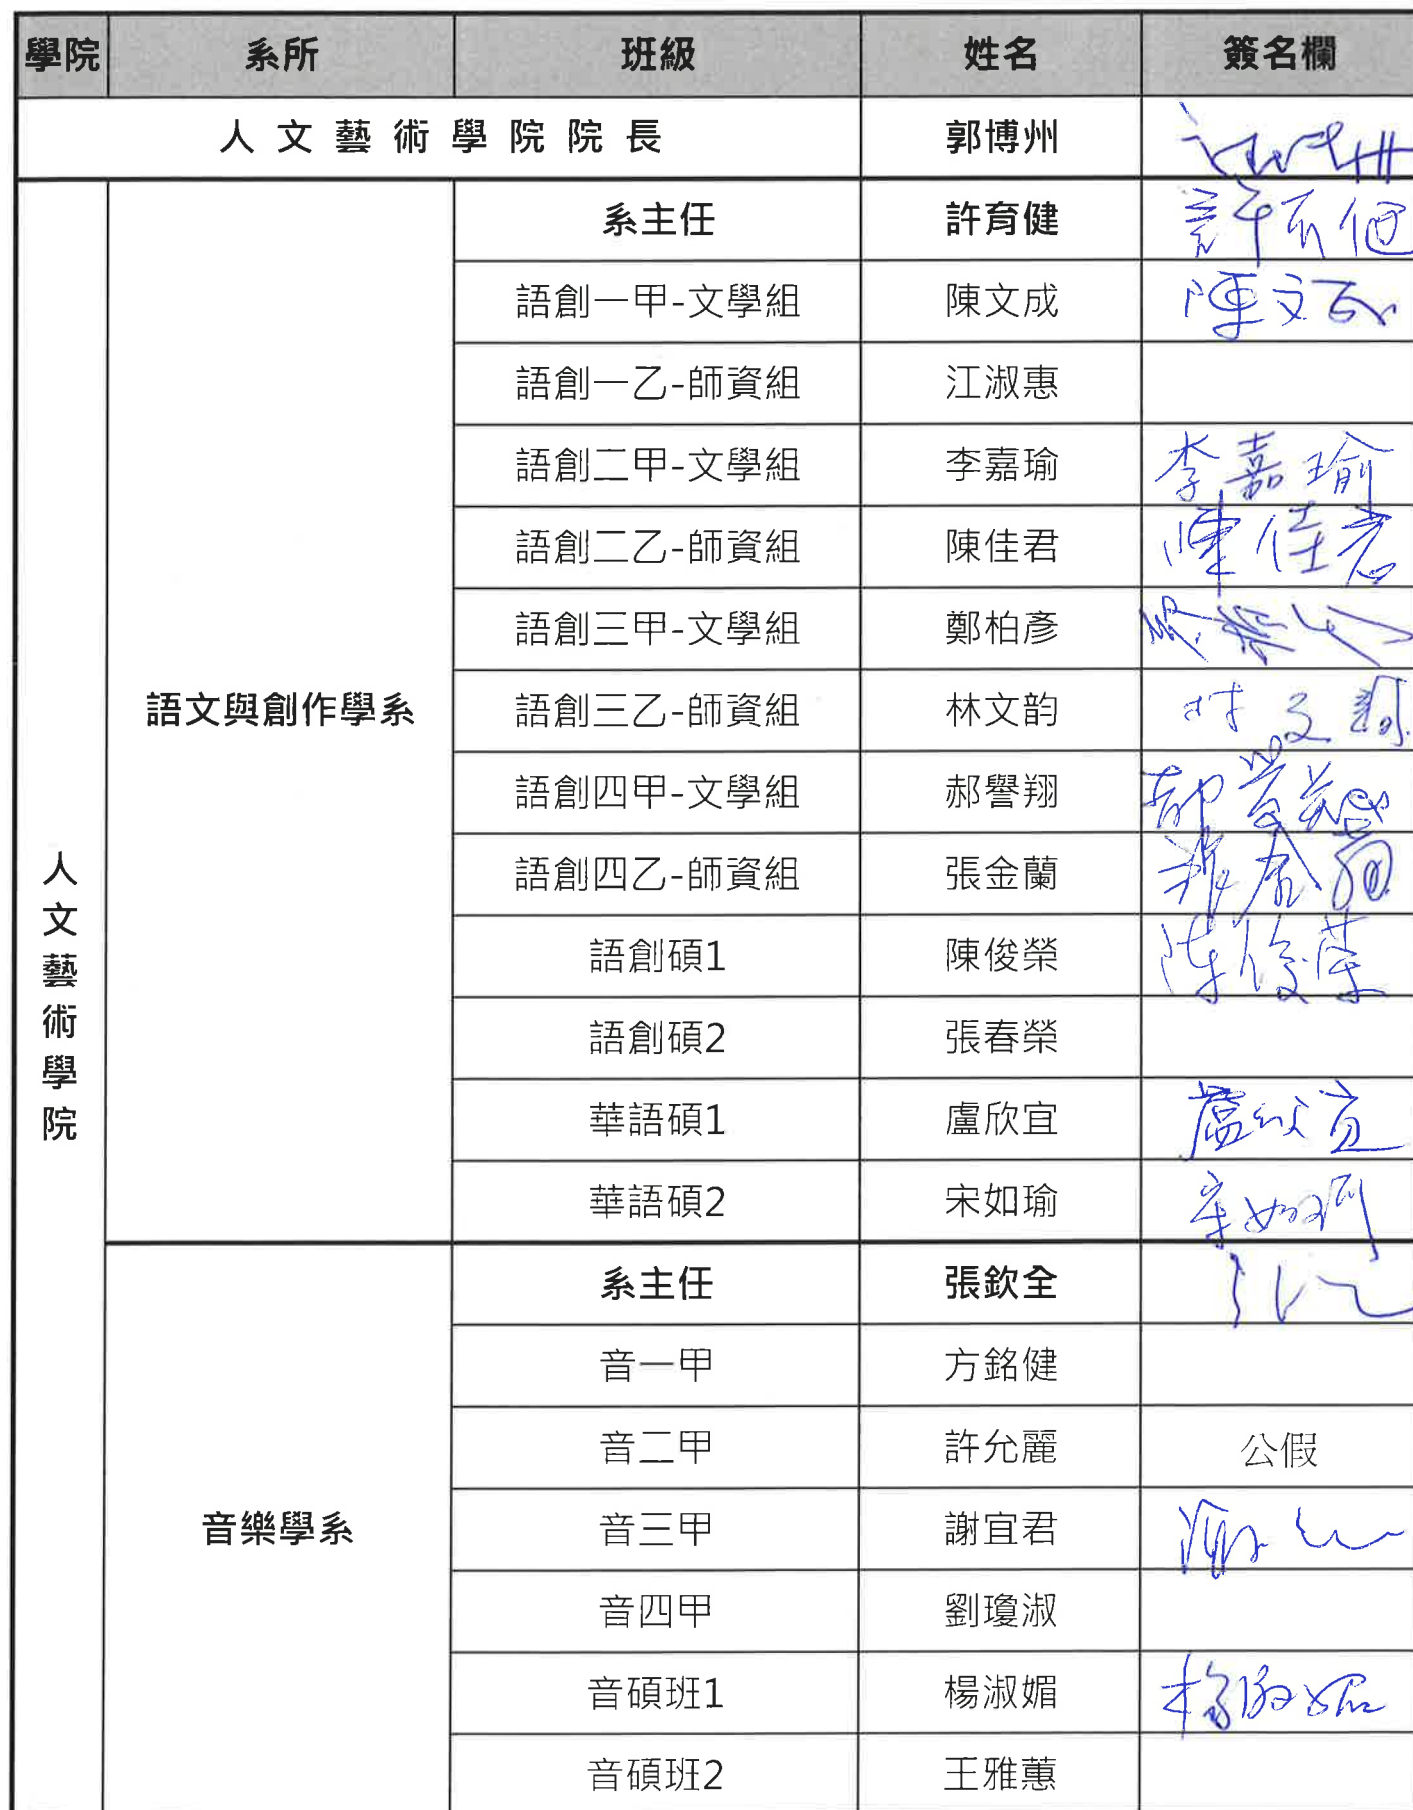 學院 系所 班級 姓名 簽名欄
人文藝術學院院長 郭博州
系主任 許育健 許育健
語創一甲-文學組 陳文成 陳文成
語創一乙-師資組 江淑惠
語創二甲-文學組 李嘉瑜 李嘉瑜
語創二乙-師資組 陳佳君 陳佳君
語創三甲-文學組 鄭柏彥
語文與創作學系 語創三乙-師資組 林文韵 林文韵
語創四甲-文學組 郝譽翔 郝譽翔
語創四乙-師資組 張金蘭 張金蘭
人文藝術學院
語創碩1 陳俊榮 陳俊榮
語創碩2 張春榮
華語碩1 盧欣宜 盧欣宜
華語碩2 宋如瑜 宋如瑜
系主任 張欽全
音一甲 方銘健
音二甲 許允麗 公假
音樂學系 音三甲 謝宜君
音四甲 劉瓊淑
音碩班1 楊淑媚 楊淑媚
音碩班2 王雅蕙